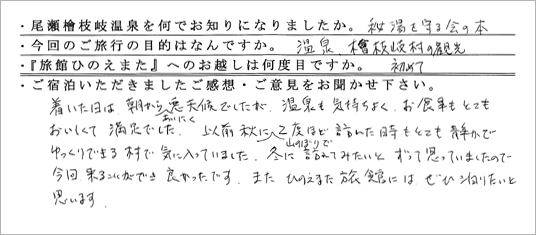 ・尾瀬檜枝岐温泉を何でお知りになりましたか。 秘湯を守る会の本
・今回のご旅行の目的はなんですか。 温泉、檜枝岐村の観光
・『旅館ひのえまた』へのお越しは何度目ですか。 初めて
・ご宿泊いただきましたご感想・ご意見をお聞かせ下さい。
着いた日は、朝からあいにく悪天候でしたが、温泉も気持ちよく、お食事もとても
おいしくて 満足でした。 以前 秋に 2度ほど 訪れた時もとても 静かで
ゆっくりできる 村で 気に入っていました。冬に 山のぼりで 訪れてみたいと ずっと思っていましたので
今回 来ることができ 良かったです。 また ひのえまた 旅館には ぜひ 泊りたいと
思います。